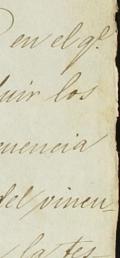 en el ql.
uir los
cuencia
del vincu-
la tes-